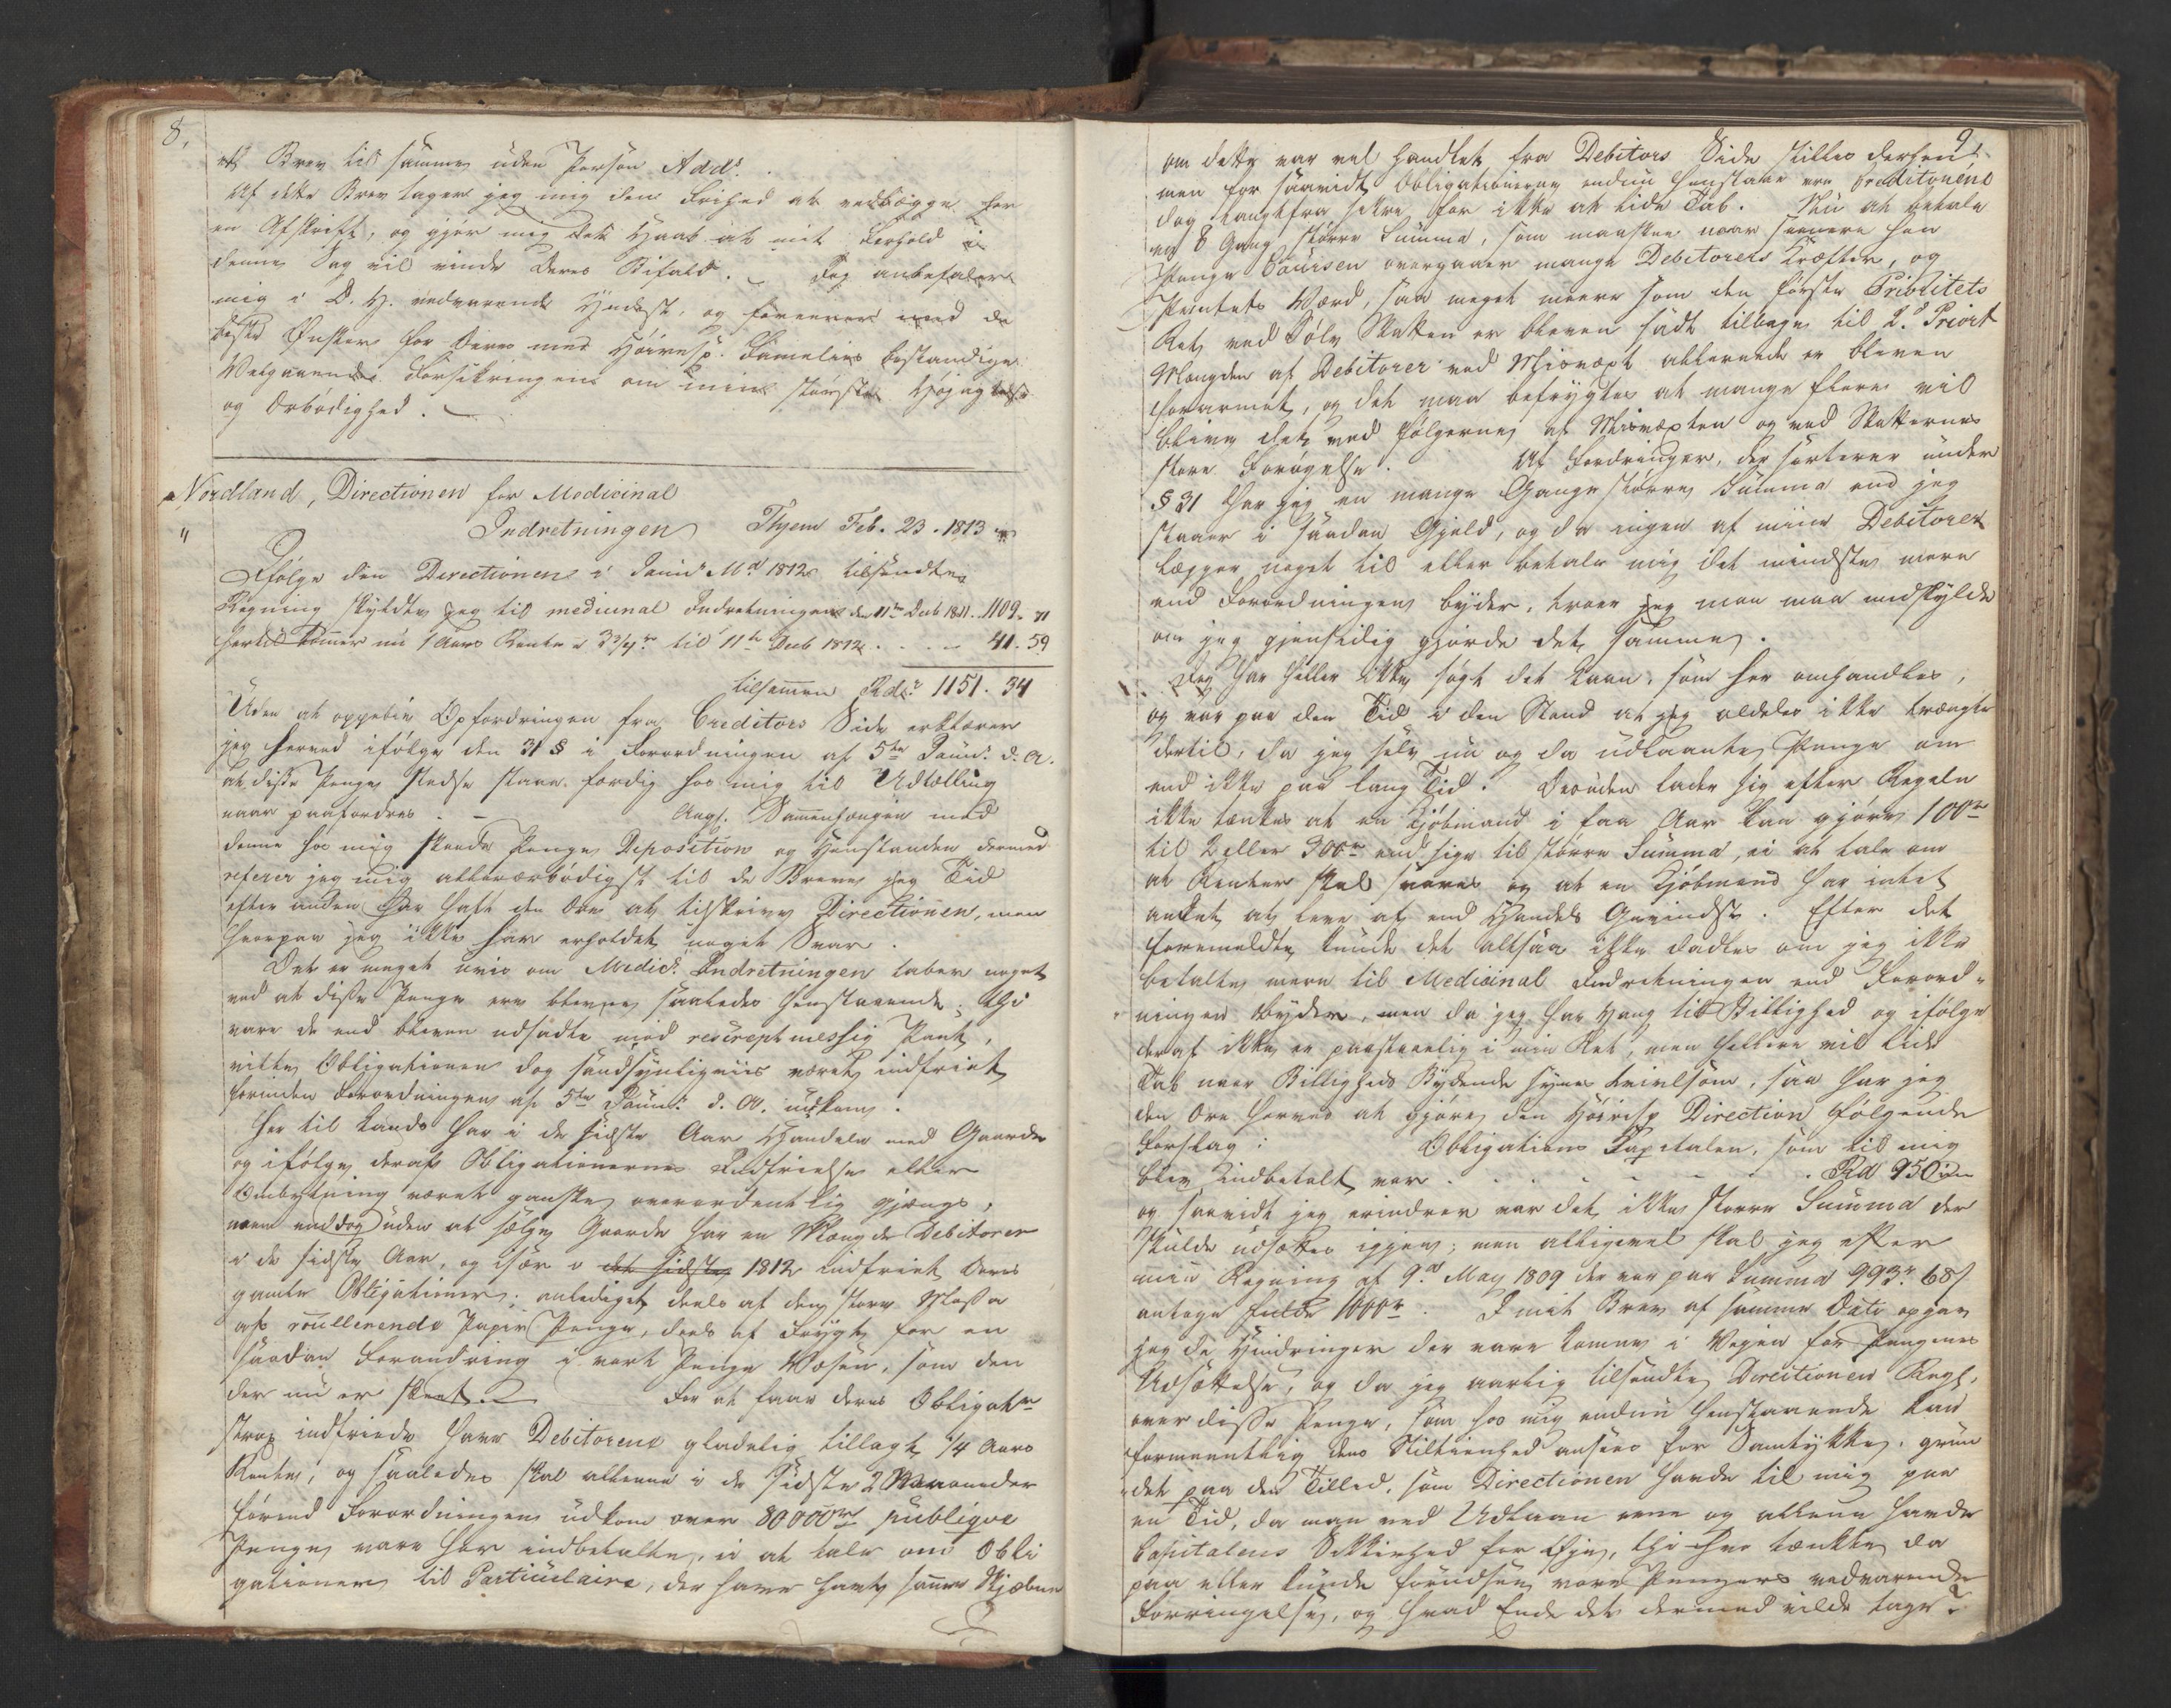 8.
et Brev til samme uden Person Add.
Af dette Brev tager jeg mig den Frihed at vedlægge her
en Afskrift, og gjør mig det Haab at mit Forhold i
denne Sag vil vinde Deres Bifald. Jeg anbefaler
mig i D. H. vedvarende Yndest, og forener med de
beste Ønsker for Deres med Høivelsp. Families bestandige
Velgaaende Forsikringen om min største Højagtelse
og Ærbødighed.
Nordland, Directionen for Medicinal
Indretningen Thjem Feb. 23. 1813
Ifølge den Directionen i Janu. Md 1812 tilsendte
Regning skyldte jeg til medicinal Indretningen den 11te Decb 1811. 1109. 71
hertil kommer nu 1 Aars Rente a 3 3/4 til 11te Decb 1812 41. 59
tilsammen Rdr 1151. 34
Uden at oppebie Opfordringen fra Creditors Side erklærer
jeg herved ifølge den 31 § i Forordningen af 5te Janu. d. A.
at disse Penge stedse staae færdig hos mig til Udtælling
naar paafordres. Ang. Sammenhængen med
denne hos mig skeede Penge Deposition og Henstanden dermed
referer jeg mig allerærbødigst til de Breve jeg Tid
efter anden har haft den Ære at tilskrive Directionen, men
hvorpaa jeg ikke har erholdet noget Svar.
Det er meget uvis om Medici. Indretningen taber noget
ved at disse Penge ere blevne saaledes henstaaende; thi
vare de end bleven udsadte mod rescriptmessig Pant,
vilde Obligationen dog sandsynligviis været indfriet
forinden Forordningen af 5te Janu. d. A. udkom.
Her til Lands har i de sidste Aar Handelen med Gaarde
og ifølge deraf Obligationernes Indfrielse eller
Ombytning været ganske overordentlig gjængs,
men enddog uden at sælge Gaarde har en Mængde Debitorer
i de sidste Aar, og især i det sidste 1812 indfriet deres
gamle Obligationer; anlediget deels af den store Massa
af roullerende Papir Penge, deels af Frygt for en
saadan Forandring i vort Penge Væsen, som den
der nu er skeet. For at faae deres Obligatr
strax indfriede have Debitorene gladelig tillagt 1/4 Aars
Rente, og saaledes skal allene i de sidste 2 Maaneder
førend Forordningen udkom over 80000 rd publiqve
Penge være her indbetalte, ei at tale om Obli
gationer til Particulaire, der have havt samme Skjæbne
9.
om dette var vel handlet fra Debitors Side stilles derhen;
men for saavidt Obligationerne endnu henstaae ere Creditorene
dog langtfra sikre for ikke at lide Tab. Nu at betale
en 8 Gang større Summa, som maaskee naar senere hen
Penge Coursen overgaaer mange Debitorers Kræfter, og
Pantets Værd, saa meget meere som den første Prioritets
Ret ved Sølv Skatten er bleven sadt tilbage til 2d Priorit
Mængden af Debitorer ved Misvæxt allerede er bleven
forarmet, og det maa befrygtes at mange flere vil
blive det ved Følgerne af Misvæxten og ved Skatternes
store Forøgelse. Af Fordringer, der sorterer under
§ 31 har jeg en mange Gange større Summa end jeg
staaer i saadan Gjeld, og da ingen af mine Debitorer
lægger noget til eller betale mig det mindste mere
end Forordningen byder, troer jeg man maa undskylde
om jeg gjensidig gjorde det samme.
Jeg har heller ikke søgt det Laan, som her omhandles,
og var paa den Tid i den Stand at jeg aldeles ikke trængte
dertil, da jeg selv nu og da udlaante Penge om
end ikke paa lang Tid. Desuden lader sig efter Regelen
ikke tænkes at en Kjøbmand i faa Aar kan gjøre 100 rd
til 2 eller 300 rd end sige til større Summa, ei at tale om
at Renter skal svares og at en Kjøbmand har intet
andet at leve af end Handels Gevindst. Efter det
foremeldte kunde det altsaa ikke dadles om jeg ikke
betalte mere til Medicinal Indretningen end Forord-
ningen byder, men da jeg har Hang til Billighed og ifølge
deraf ikke er paastaaelig i min Ret, men hellere vil lide
Tab naar Billigheds Bydende synes tvivlsom, saa har jeg
den Ære herved at gjøre den Høivelsp Direction følgende
Forslag: Obligations Capitalen, som til mig
blev indbetalt var . . . . Rd 950
og saavidt jeg erindrer var det ikke større Summa der
skulde udsættes igjen; men alligevel skal jeg efter
min Regning af 9d May 1809 der var paa Summa 993 r 68 s
antage fulde 1000 r. I mit Brev af samme Dato opgav
jeg de Hindringer der vare komne i Vejen for Pengenes
Udsættelse, og da jeg aarlig tilsendte Directionen Regl.
over disse Penge, som hos mig endnu henstaaende kan
formeentlig dens Stiltienhed ansees for Samtykke, grun
det paa den Tillid, som Directionen havde til mig paa
en Tid, da man ved Udlaan ene og allene havde
Capitalens Sikkerhed for Øje, thi hvo tænkte da
paa eller kunde forudsee vore Pengers vedvarende
Forringelse, og hvad Ende det dermed vilde tage?